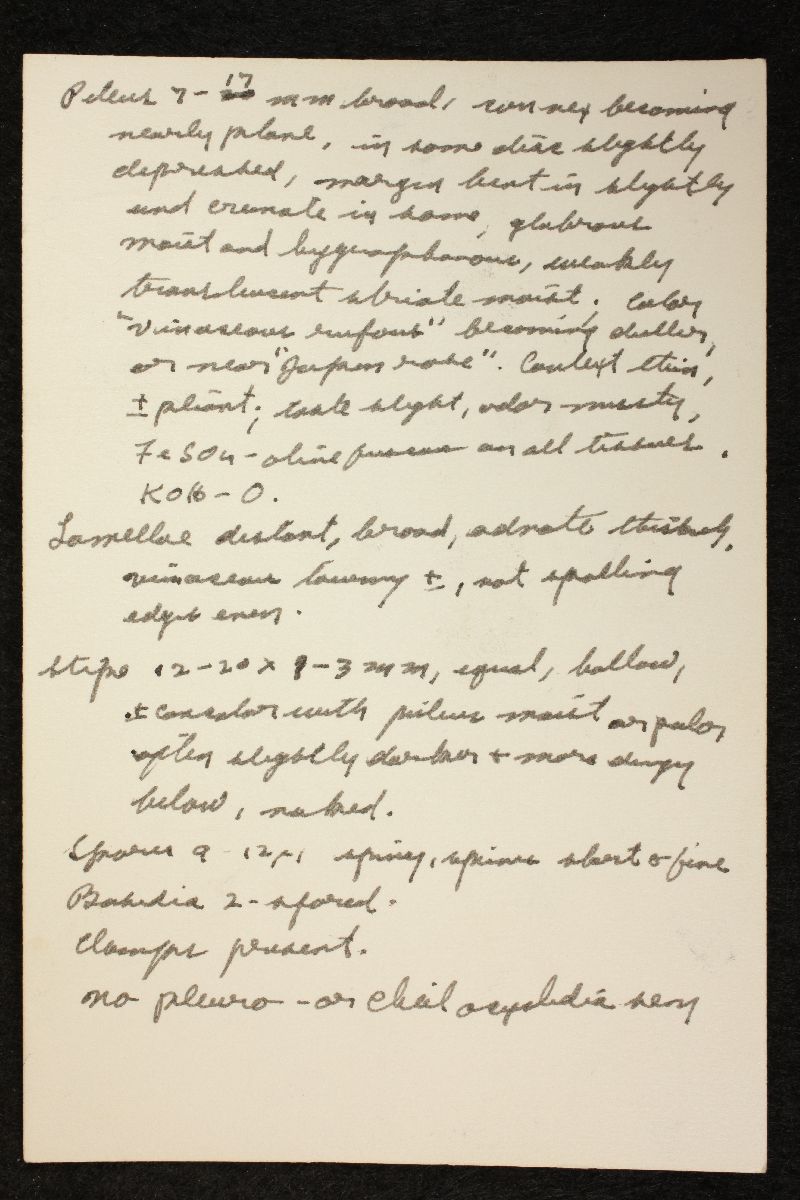 Pileus 7-17 mm broad, convex becoming
nearly plane, in some disc slightly
depressed, margin bent in slightly
and crenate in some, glabrous
moist and hygrophanous, weakly
translucent striate moist. Color
"vinaceous rufous" becoming duller,
or near "Japan rose". Context thin,
± pliant; taste slight, odor musty,
FeSO4 - olive fuscous on all tissues.
KOH - O.
Lamellae distant, broad, adnate
vinaceous tawny ±, not spotting
edges even.
Stipe 12-20 x 1-3 mm, equal, hollow,
± concolor with pileus moist or paler
often slightly darker + more dingy
below, naked.
Spores 9-12 μ, spiny, spines short & fine
Basidia 2-spored.
Clamps present.
no pleuro - or cheilocystidia seen